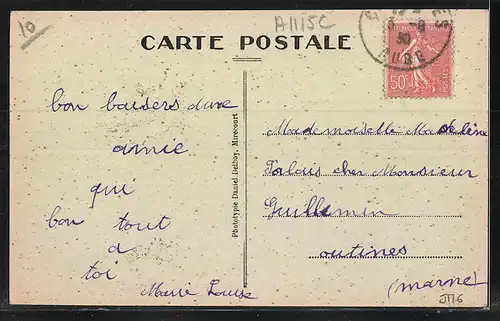 10
A1115C
CARTE POSTALE
AUBE
50
bon baisers d'une
amie
qui
bon tout
a
toi
Marie Louise
Phototypie Daniel Delboy, Mirecourt
Mademoiselle Madeleine
cher Monsieur
Guillemin
outines
(marne)